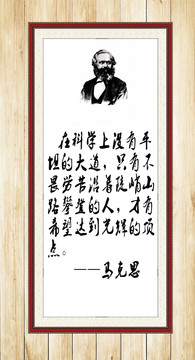 在科学上没有平
坦的大道，只有不
畏劳苦沿着陡峭山
路攀登的人，才有
希望达到光辉的顶
点。
——马克思